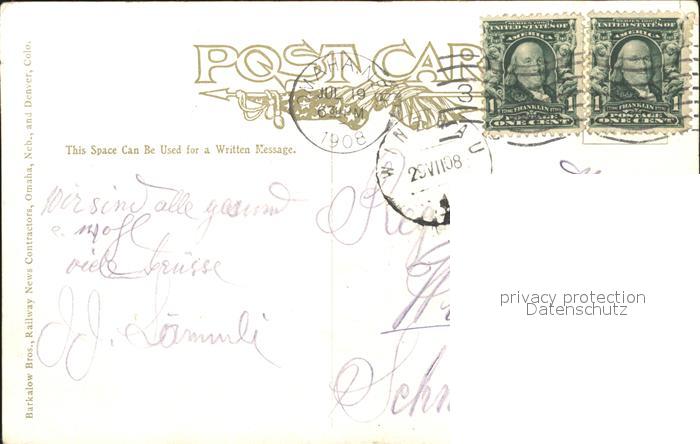 POST CAR
SERIES 1902
UNITED STATES OF
AMERICA
FRANKLIN
1 1
POSTAGE
ONE CENT
SERIES 1902
UNITED STATES OF
AMERICA
FRANKLIN
1 1
POSTAGE
ONE CENT
OMAHA, NEB.
JUL 19
6 PM
1908
3
AU
VII 08
This Space Can Be Used for a Written Message.
Wir sind alle gesund
& wohl
viele Grüsse
J. J. Lämmli
Schn
privacy protection
Datenschutz
Barkalow Bros., Railway News Contractors, Omaha, Neb., and Denver, Colo.